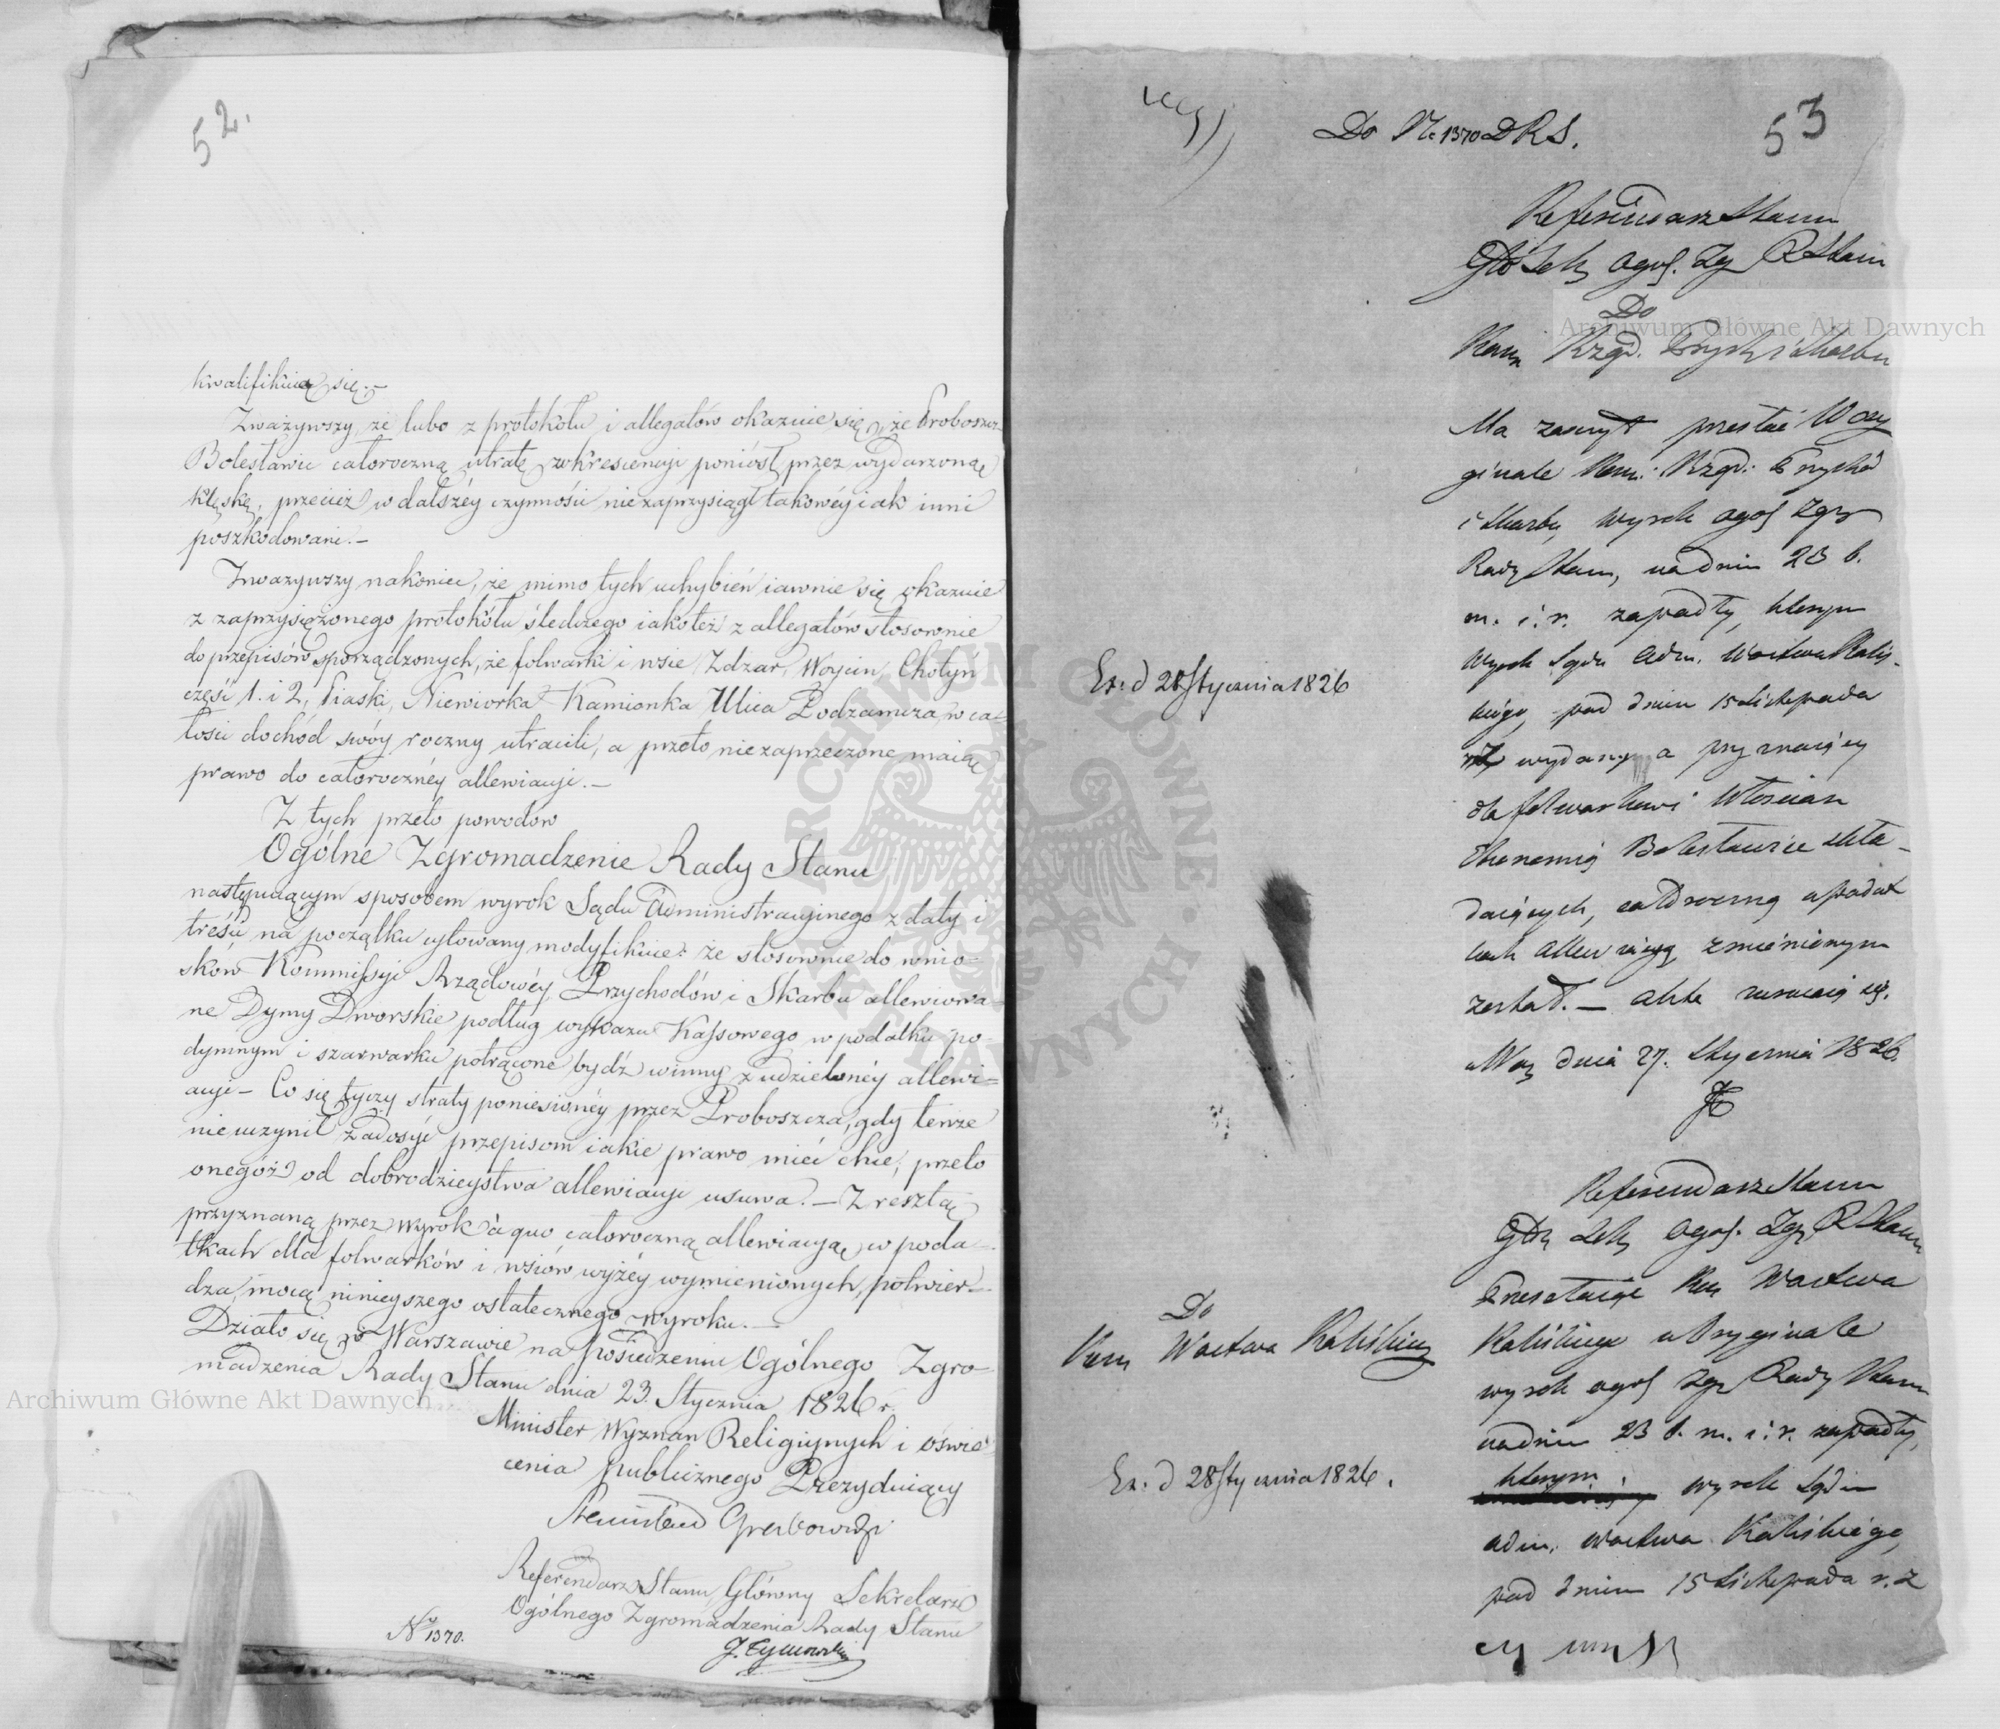 52.
kwalifikuią się.–
Zważywszy, że lubo z protokółu i allegatów okazuie się że Proboszcz
Bolesławic całoroczną utratę w krescencyi poniósł przez wydarzoną
klęskę, przecież w dalszéy czynności nie zaprzysiągł takowéy iak inni
poszkodowani.–
Zważywszy nakoniec, że mimo tych uchybień iawnie się okazuie
z zaprzysiężonego protokółu śledczego iakoteż z allegatów stosownie
do przepisów sporządzonych, że folwarki i wsie Zdzar, Woycin, Chotyń
części 1. i 2, Piaski, Niewiorka Kamionka Ulica Podzamcza, w ca-
łości dochód swóy roczny utracili, a przeto niezaprzeczone maią
prawo do całorocznéy allewiacyi.–
Z tych przeto powodów
Ogólne Zgromadzenie Rady Stanu
następuiącym sposobem wyrok Sądu Administracyinego z daty i
treści na początku cytowany modyfikuie: że stosownie do wnio-
sków Kommissyi Rządowéy Przychodów i Skarbu allewiowa-
ne Dymy Dworskie podług wykazu Kassowego w podatku po-
dymnym i szarwarku potrącone bydź winny z udzielonéy allewi=
acyi – Co się tyczy straty poniesionéy przez Proboszcza, gdy tenże
nieuczynił zadosyć przepisom iakie prawo mieć chce, przeto
onegoż od dobrodzieystwa allewiacyi usuwa.– Z resztą
przyznaną przez wyrok à quo całoroczną allewiacyą w poda-
tkach dla folwarków i wsiów wyżéy wymienionych, potwier-
dza, mocą ninieyszego ostatecznego wyroku.–
Działo się w Warszawie na Posiedzeniu Ogólnego Zgro-
madzenia Rady Stanu dnia 23. Stycznia 1826 r.
Minister Wyznań Religiynych i oświe-
cenia publicznego Prezyduiący
Stanisław Grabowski
Referendarz Stanu Główny Sekretarz
Ogólnego Zgromadzenia Rady Stanu
No 1370.
J. Tymowski
53
Do No 1370 D R S.
Referendarz Stanu
Gło Sek ogol. Zg R Stanu
Do
Kom Rząd. Przych i Skarbu
Ma zaszczyt przesłać W ory
ginale Kom: Rząd: Przychó
i Skarbu, wyrok ogol Zgr
Rady Stanu, na dniu 23 b.
m. i. r. zapadły, którym
wyrok Sądu Adm. Wdztwa Kalis-
kiego, pod dniem 15 Listopada
wydany a przyznaiący
dla folwarków i Włościan
Ekonomią Bolesławice skła-
daiących, całoroczną w podat
kach allewiacyą zmienionym
został.– Akta zwracaią się.
Warsz dnia 27. Stycznia 1826.
Ex: d 28 Stycznia 1826
Referendarz Stanu
Głó Sek Ogol. Zgr R Stanu
Do
Kom Wdztwa Kaliskiego
Przesełaiąc Kom Wdztwa
Kaliskiego w Oryginale
wyrok ogol Zgr Rady Stanu
na dniu 23 b. m. i. r. zapadły,
którym wyrok Sądu
adm. wdztwa Kaliskiego,
pod dniem 15 Listopada r. z
Ex: d 28 Stycznia 1826.
Archiwum Główne Akt Dawnych
Archiwum Główne Akt Dawnych
ARCHIWUM GŁÓWNE AKT DAWNYCH